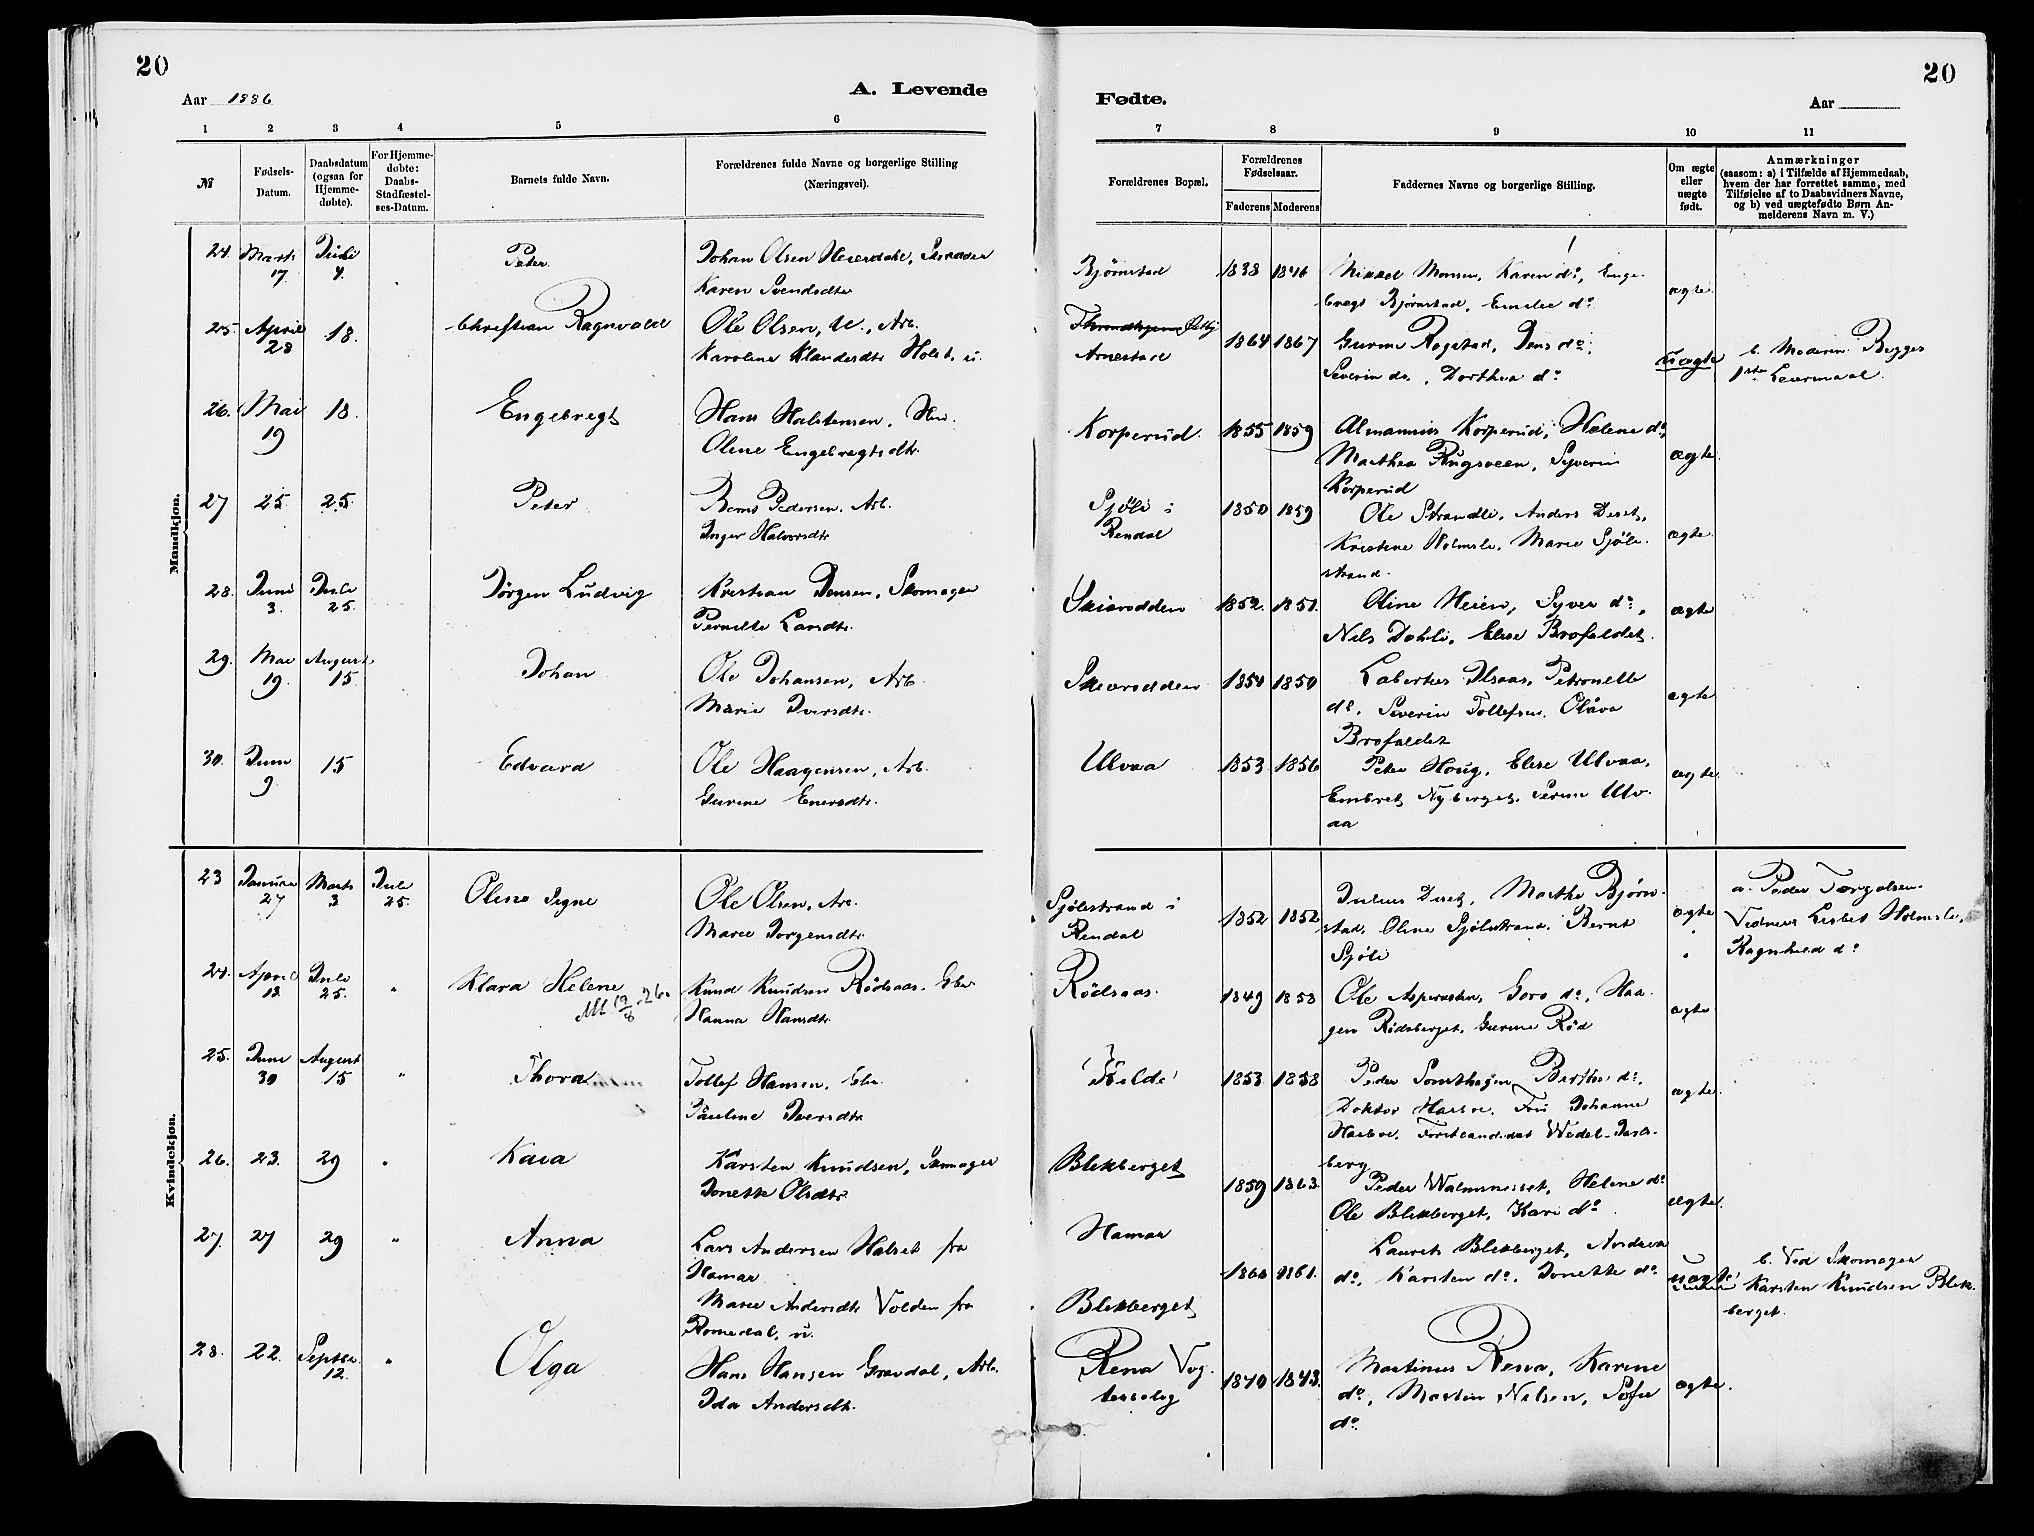 20
20
Aar 1886
A. Levende
Fødte.
Aar
1
2
3
4
5
6
7
8
9
10
11
№
Fødsels-
Datum.
Daabsdatum
(ogsaa for
Hjemme-
døbte).
For Hjemme-
døbte:
Daabs-
Stadfæstel-
ses-Datum.
Barnets fulde Navn.
Forældrenes fulde Navne og borgerlige Stilling
(Næringsvei).
Forældrenes Bopæl.
Forældrenes
Fødselsaar.
Faderens
Moderens
Faddernes Navne og borgerlige Stilling.
Om ægte
eller
uægte
født.
Anmærkninger
(saasom: a) i Tilfælde af Hjemmedaab,
hvem der har forrettet samme, med
Tilføielse af to Daabsvidners Navne,
og b) ved uægtefødte Børn An-
melderens Navn m. V.)
Mandkjøn.
24. Marts 17. Juli 4. Peter Johan Olsen Heierdahl,
Karen Svendsdtr
Bjørnstad 1838 1846 Mikkel Monsen, Karen do, Enge-
bregt Bjørnstad, Emelie do ægte
25. April 28 18. Christian Ragnvald Ole Olsen, U., Arb.
Karoline Holst, u.
Arnestad 1864 1867 Gurine Rogstad, Jens do,
Severin do, Dorthea do uægte b. Moderen. Begges
1ste Leiermaal.
26. Mai 19 18. Engebregt Hans Halstensen,
Oline Engebregtsdtr.
Korperud 1855 1859 Korperud, Helene do,
Marthea Rugsveen, Syverin
Korperud ægte
27 25 25. Peter Bernt Pedersen, Arb.
Inger Halvorsdtr
Sjöli i
Rendal 1850 1859 Ole Strandli, Anders Deset,
Kristine Holmsli, Marie Sjöli-
strand. ægte
28. Juni 3. Juli 25. Jörgen Ludvig Kristian Jensen, Skomager
Pernille Larsdtr.
Skiærodden 1852 1851 Oline Heien, Syver do,
Nils Dahli, Elise Brofaldet. ægte
29. Mai 19. August 15. Johan Ole Johansen, Arb.
Marie Iversdtr.
Skiærodden 1854 1850 Ilsaas, Petronelle
do, Severin Tollefsen, Olava
Brofaldet ægte
30. Juni 9. 15 Edvard Ole Haagensen, Arb.
Gurine Enersdtr.
Ulvaa 1853 1856 Peter Houg, Elise Ulvaa,
Embret Nyberget, Serine Ulv-
aa ægte
Kvindekjøn.
23 Januar 27 Marts 3 Juli 25. Oline Signe Ole Olsen, Arb.
Marie Jorgensdtr.
Sjölistrand i
Rendal 1852 1852 Julius Deset, Marthe Bjørn-
stad, Oline Sjölistrand, Bernt
Sjöli ægte a. Peder Torgalsen.
Vidner Lisbet Holmsli,
Ragnhild do
24. April 13. Juli 25. " Klara Helene
19/8 26.
Knud Knudsen Rödsaas.
Hanna Hansdtr.
Rödsaas. 1849 1853 Ole Aspersten, Goro do, Haa-
gen Rødsberget, Gurine Rød ægte
25. Juni 30 August 15 " Thora Tollef Hansen,
Pauline Iversdtr
Kilde 1853 1858 Peder Sorthagen Berthe do,
Doktor Harboe, Fru Johanne
Harboe, Forstcandidat Wedel-Jarls-
berg ægte
26. 23. 29 " Kaia Karsten Knudsen, Skomager
Jonette Olsdtr.
Blekberget 1859 1863. Peder Helene do
Ole Blekberget, Kari do ægte
27. 27 29 " Anna Lars Andersen Halset fra
Hamar
Marie Andersdtr Volden fra
Romedal, u.
Hamar
Blekberget 1860 1861. Laurits Blekberget, Andrea
do, Karsten do, Jonette do uægte b. Ved Skomager
Karsten Knudsen Blek-
berget.
28. 22. Septbr. 12. " Olga Hans Hansen Grøndal, Arb.
Ida Andersdtr.
Rena Vog-
terbolig 1840 1843. Martinus Rena, Karine
do, Martin Nilsen, Sofie
do ægte.